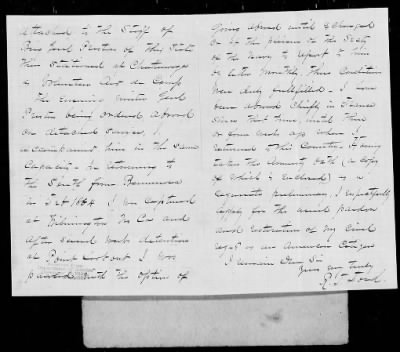 attached to the Staff of
Genl Preston of this State
then stationed at Chattanooga
a Volunteer Aid de Camp
The ensuing winter Genl
Preston being ordered abroad
on detached service, I
accompanied him in the same
Capacity - In returning to
the South from Bermuda
in Oct 1864 I was captured
at Wilmington N. Ca and
after several weeks detention
at Point Lookout I was
paroled with the option of
going abroad until exchanged
or by the pleasure of the Secty
of the Navy to report to him
by letter monthly. These Conditions
were duly fulfilled - I have
been abroad chiefly in France
since that time, until three
or four weeks ago when I
returned to this Country. Having
taken the Amnesty Oath (a copy
of which is enclosed) as a
requisite preliminary, I respectfully
apply for the usual pardon
and restoration of my civil
rights as an American Citizen
I remain Dear Sir
Yours very truly
R. J. Ford.